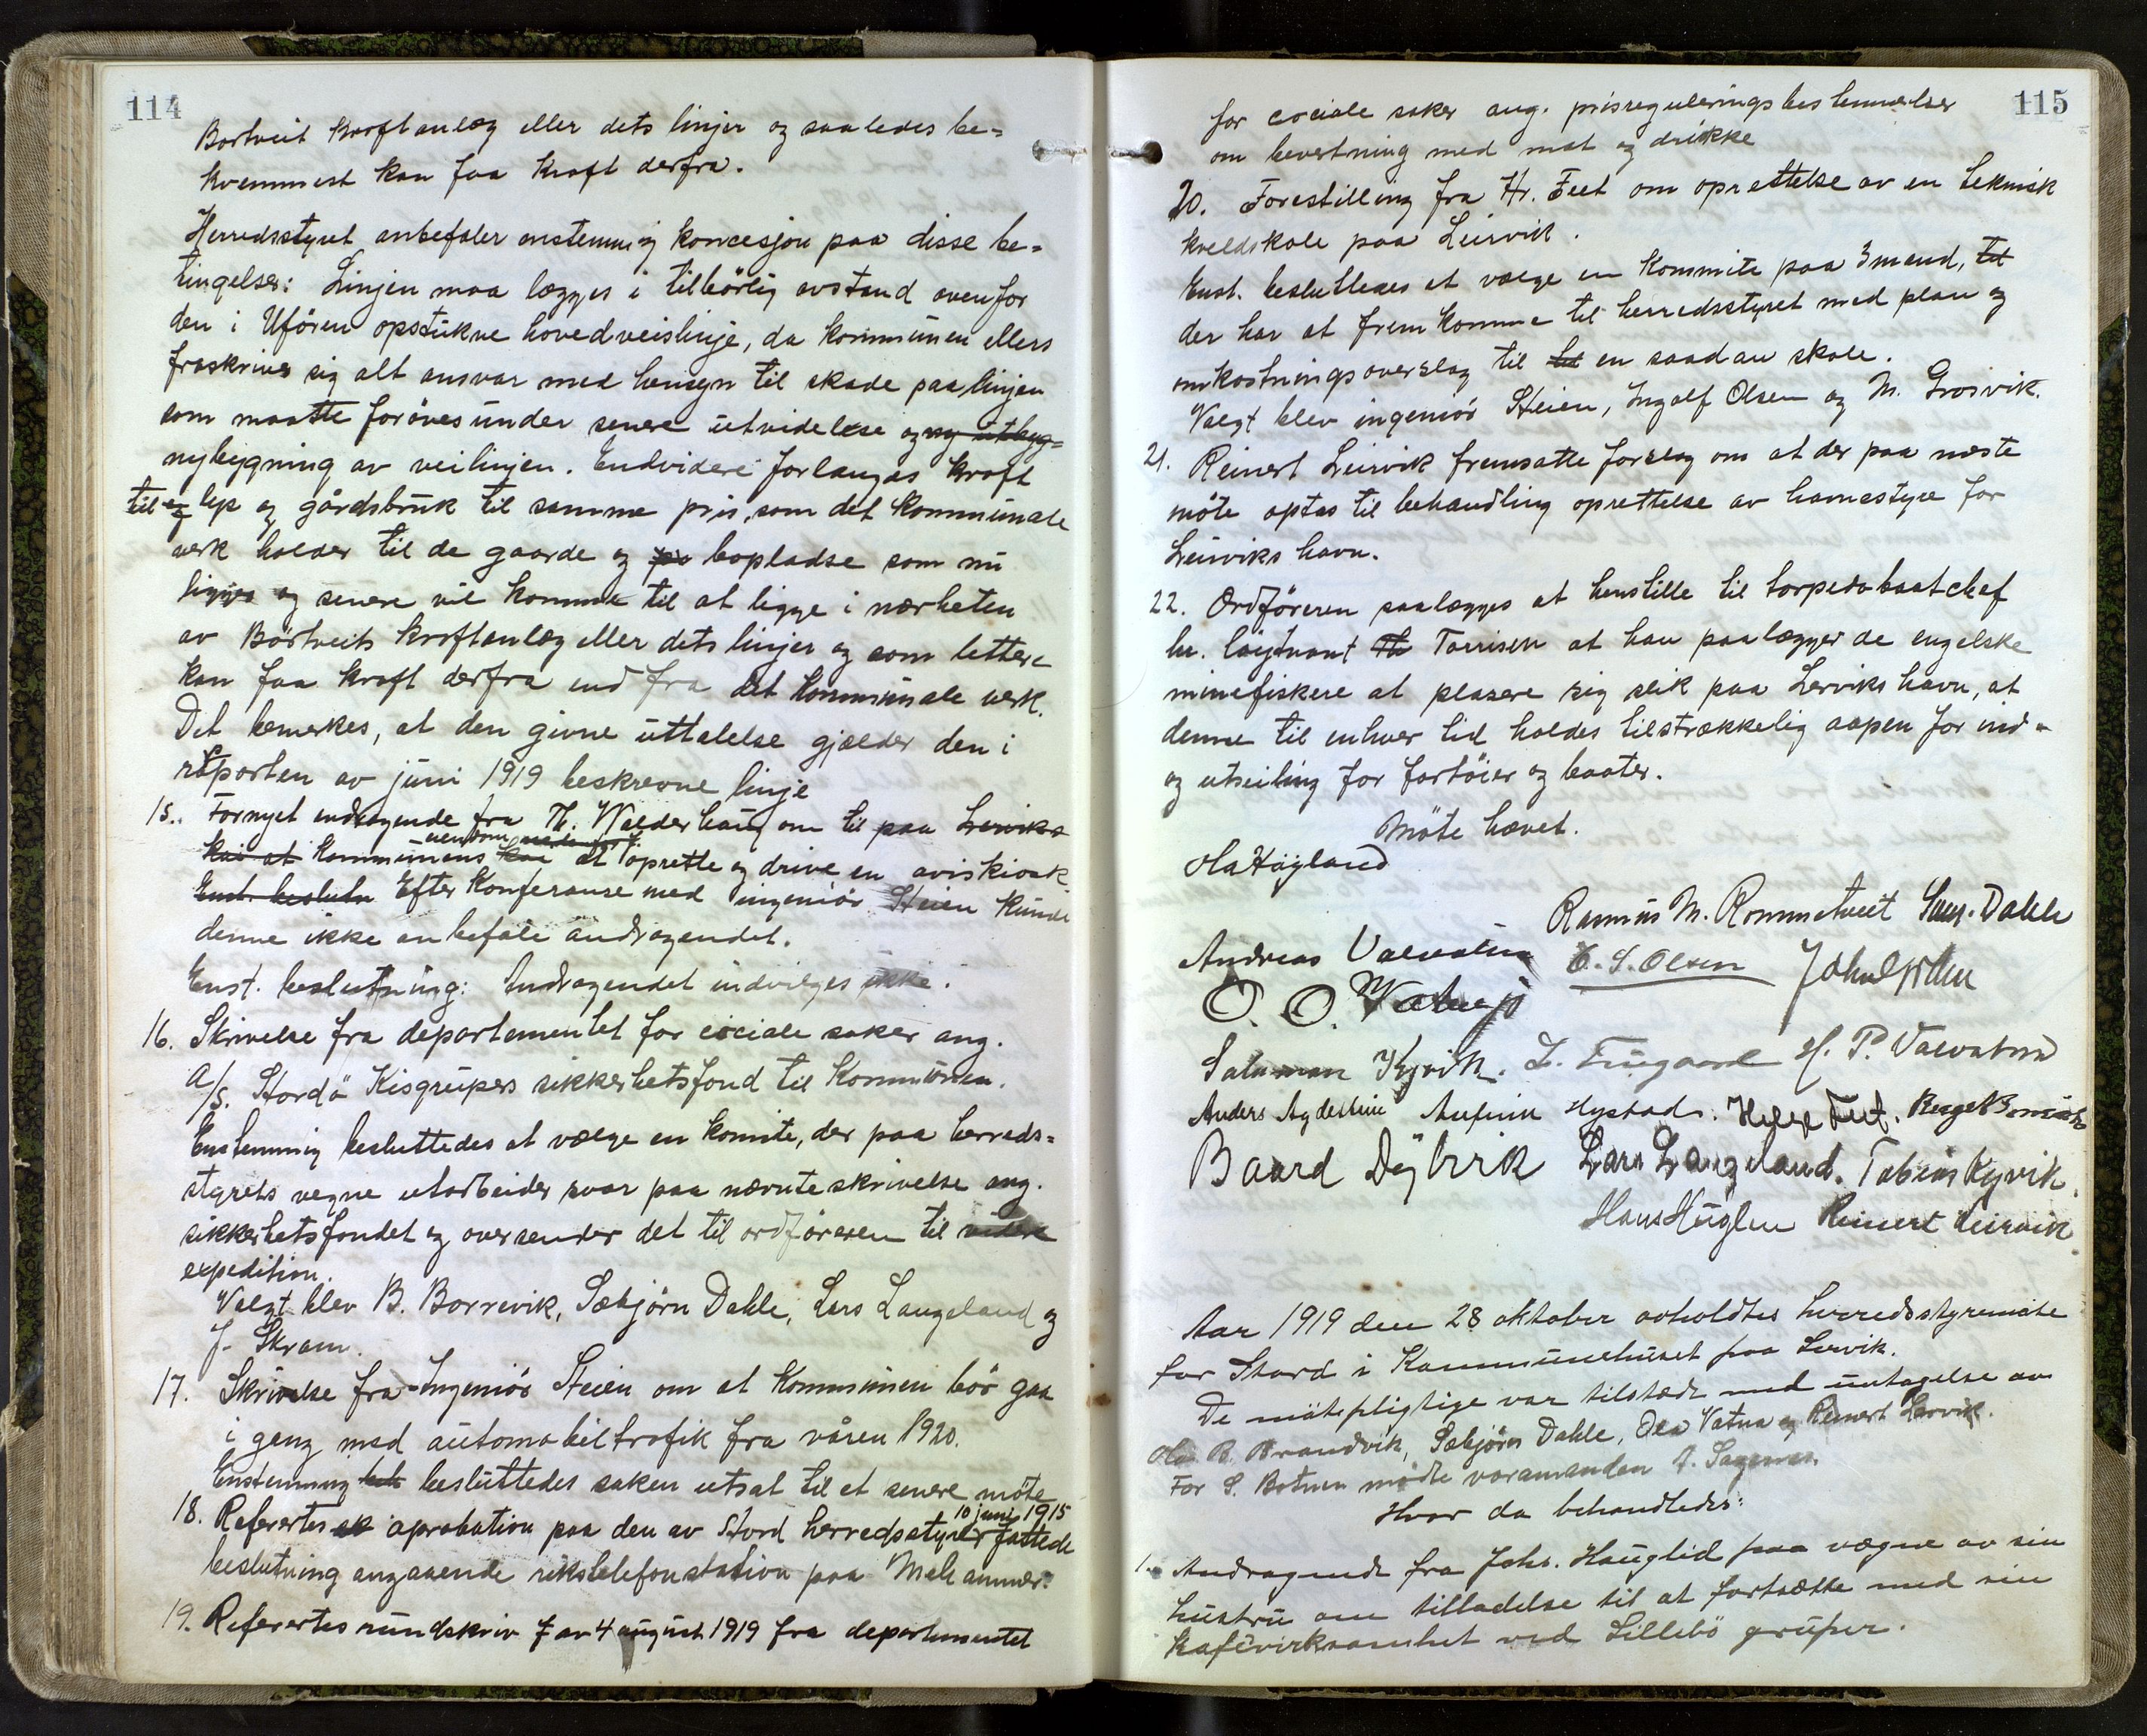 114
Børtveit Kraftanlæg eller dets linjer og saaledes be=
kvemmest kan faa kraft derfra.
Herredsstyret anbefaler enstemmig koncesjon paa disse be=
tingelser: Linjen maa lægges i tilbörlig avstand ovenfor
den i Ufören opstukne hovedveislinje, da kommunen ellers
fraskrives sig alt ansvar med hensyn til skade paa linjen
som maatte foröves under senere utvidelse og ny utbyg=
nybygning av veilinjen. Endvidere forlanges kraft
til og lys og gårdsbruk til samme pris, som det kommunale
verk holder til de gaarde og bopladse som nu
ligges og senere vil komme til at ligge i nærheten
av Börtveits kraftanlæg eller dets linjer og som lettere
kan faa kraft derfra end fra det kommunale verk.
Det bemerkes, at den givne uttalelse gjælder den i
raporten av juni 1919 beskrevne linje
15. Fornyet andragende fra Th. Valderhaug om til paa Lerviks
kai at kommunens eiendom at oprette og drive en aviskiosk.
Enst. beslutn Efter konferanse med ingeniör Steien kunde
denne ikke anbefale andragendet.
Enst. beslutning: Andragendet indvilges ikke.
16. Skrivelse fra departementet for sociale saker ang.
A/S. Stordö Kisgrupers sikkerhetsfond til kommunen.
Enstemmig besluttedes at vælge en komite, der paa herreds=
styrets vegne utarbeider svar paa nævnte skrivelse ang.
sikkerhetsfondet og oversender det til ordföreren til videre
expedition.
Valgt blev B. Borrevik, Sæbjörn Dahle, Lars Langeland og
J. Skram.
17. Skrivelse fra Ingeniör Steien om at kommunen bör gaa
i gang med automobiltrafik fra våren 1920.
Enstemmig besluttedes saken utsat til et senere möte
18. Refertes aprobation paa den av Stord herredsstyre 10 juni 1915 fattede
beslutning angaaende rikstelefonstation paa Mehammer.
19. Refertes rundskriv 7 av 4 august 1919 fra departementet
115
for sociale saker ang. prisreguleringsbestemmelser
om bevertning med mat og drikke
20. Forestilling fra Hr. Feet om oprettelse av en teknisk
kveldskole paa Leirvik.
Enst. besluttedes at vælge en kommite paa 3 mand, til
der har at fremkomme til herredsstyret med plan og
omkostningsoverslag til en saadan skole.
Valgt blev ingeniör Steien, Ingolf Olsen og M. Grosvik.
21. Reinert Leirvik fremsatte forslag om at der paa næste
möte optas til behandling oprettelse av havnestyre for
Leirviks havn.
22. Ordföreren paalægges at henstille til torpedobaatchef
hr. löitnant Th Torrisen at han paalægger de engelske
minefiskere at plasere sig slik paa Lerviks havn, at
denne til enhver tid holdes tilstrækkelig aapen for ind=
og utseiling for fartöier og baater.
Möte hævet.
Ola Høyland
Rasmus M. Rommetveit Sæbj. Dahle
Andreas Valvatna E. S. Olsen
O. O. Vatna
Salamon Kyvik. L. Tingaard H. P. Valvatna
Anders Agdestein Anfinn Hystad. Helge Feet.
Baard Digernes Lars Langeland. Tobias Kyvik.
Hans Huglen Reinert Leirvik
Aar 1919 den 28 oktober avholdtes herredsstyremöte
for Stord i Kommunehuset paa Lervik.
De mötepligtige var tilstæde med undtagelse av
Ola B. Brandvik, Sæbjörn Dahle, Ola Vatna og Reinert Lervik.
For S. Botnen mødte varamanden
Hvor da behandledes:
1. Andragende fra Johs. Hauglid paa vegne av sin
hustru om tilladelse til at fortsætte med sin
kafévirksomhet ved Lillebö gruber.